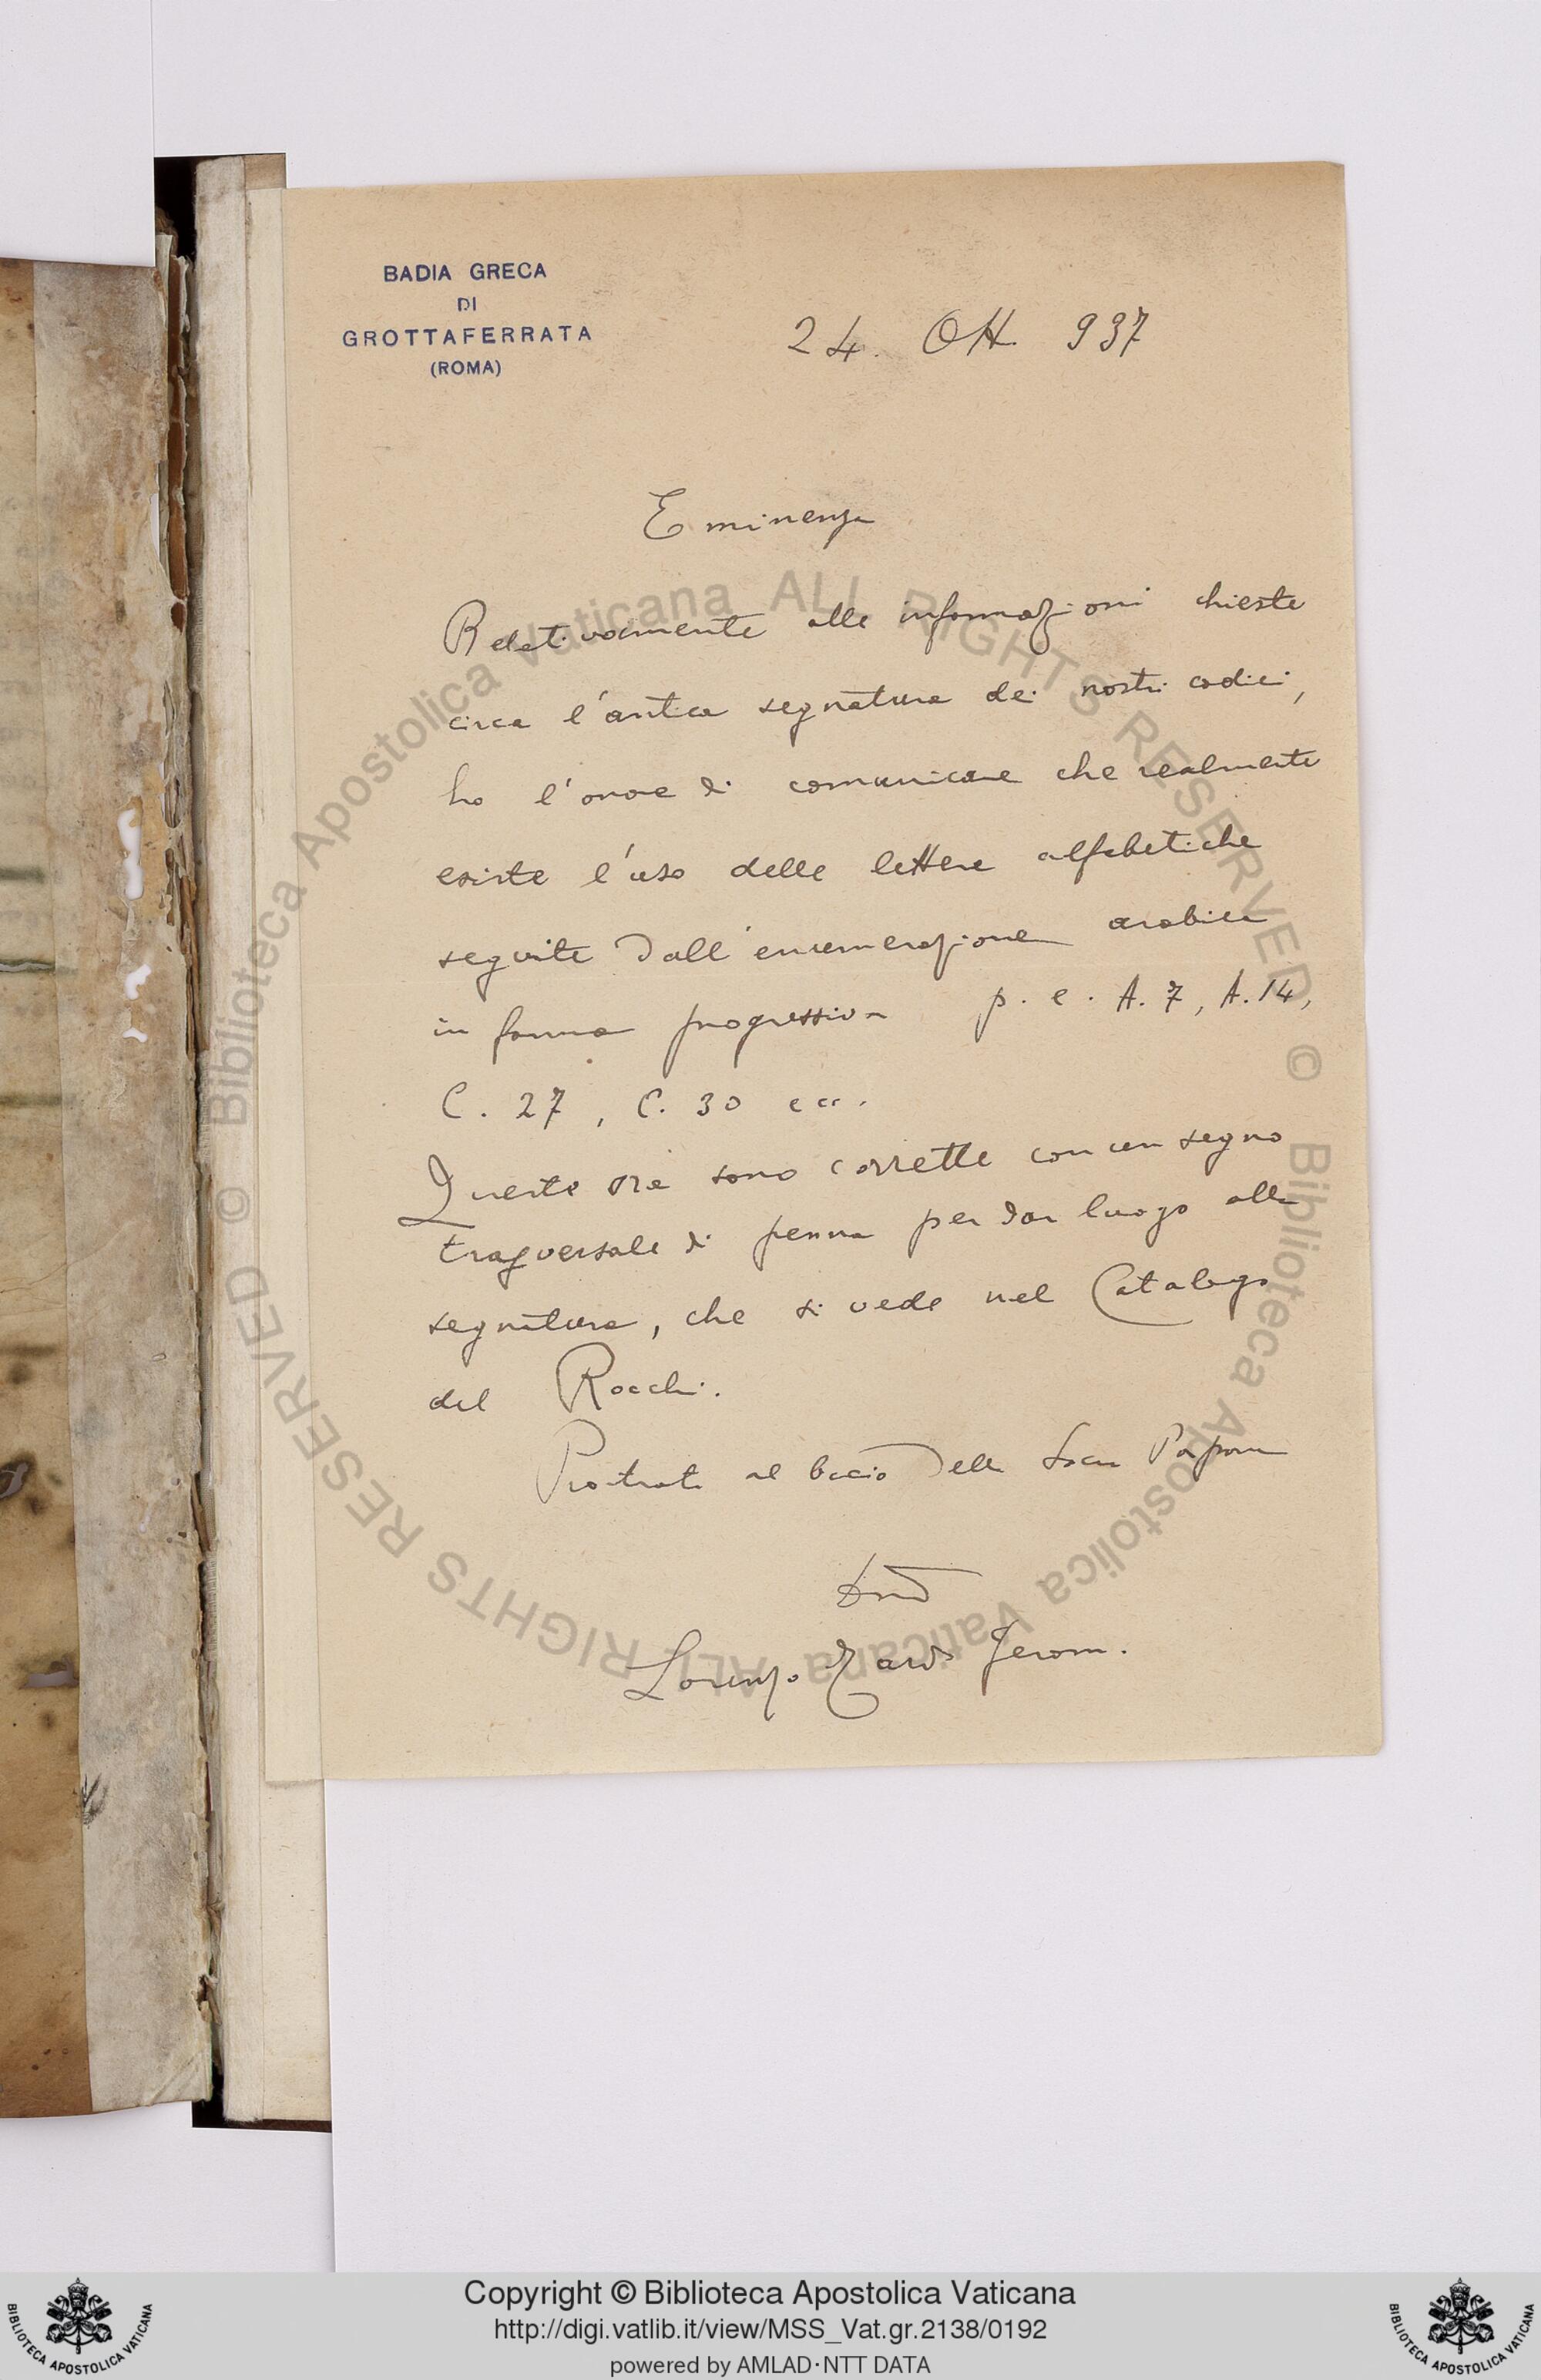 BADIA GRECA
DI
GROTTAFERRATA
(ROMA)
24. Ott. 937
Eminenza
Relativamente alle informazioni chieste
circa l'antica segnatura dei nostri codici,
ho l'onore di comunicare che realmente
esiste l'uso delle lettere alfabetiche
seguite dall'enumerazione arabica
in forma progressiva p. e. A. 7, A. 14,
C. 27, C. 30 ecc.
Queste sono corrette con un segno
trasversale di penna per dar luogo alla
segnatura, che si vede nel Catalogo
del Rocchi.
Prostrato al bacio della Sacra Porpora
Lorenzo Jerom.
© Biblioteca Apostolica Vaticana ALL RIGHTS RESERVED
© Biblioteca Apostolica Vaticana ALL RIGHTS RESERVED
Copyright © Biblioteca Apostolica Vaticana
http://digi.vatlib.it/view/MSS_Vat.gr.2138/0192
powered by AMLAD·NTT DATA
BIBLIOTECA APOSTOLICA VATICANA
BIBLIOTECA APOSTOLICA VATICANA